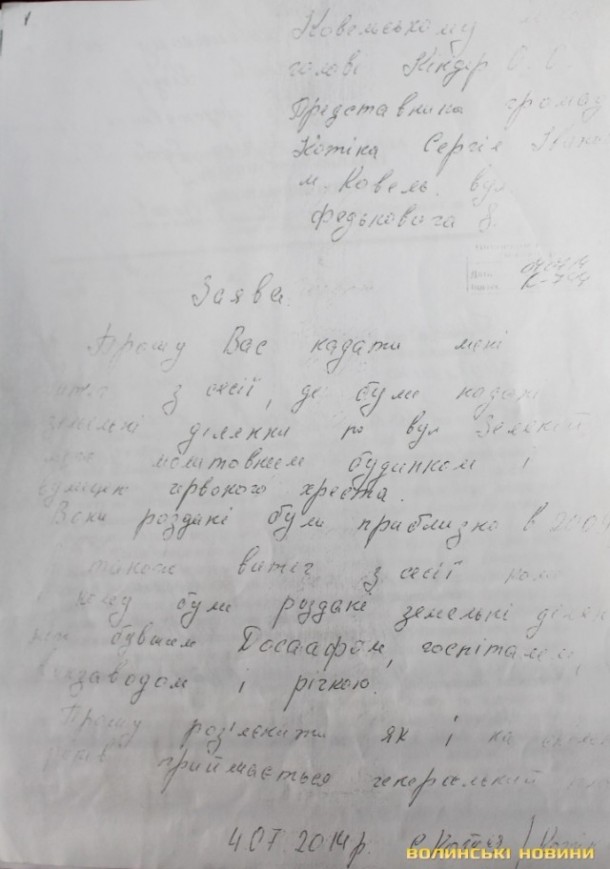 1
Ковельському
голові Кіндер О. О.
Представника громад
Котіка Сергія Івано
м. Ковель. вул
Федьковича 8.
Дата
Заява.
Прошу Вас надати мені
витяг з сесії, де були надані
земельні ділянки по вул Зеленій
молитовним будинком і
вулицею червоного хреста.
Вони роздані були приблизно в 200
також витяг з сесії коли
були роздані земельні ділян
між бувшим Досаафом, госпіталем,
заводом і річкою.
Прошу роз'яснити як і на
приймається генеральний
4.07.2014 р. Котік
ВОЛИНСЬКІ НОВИНИ